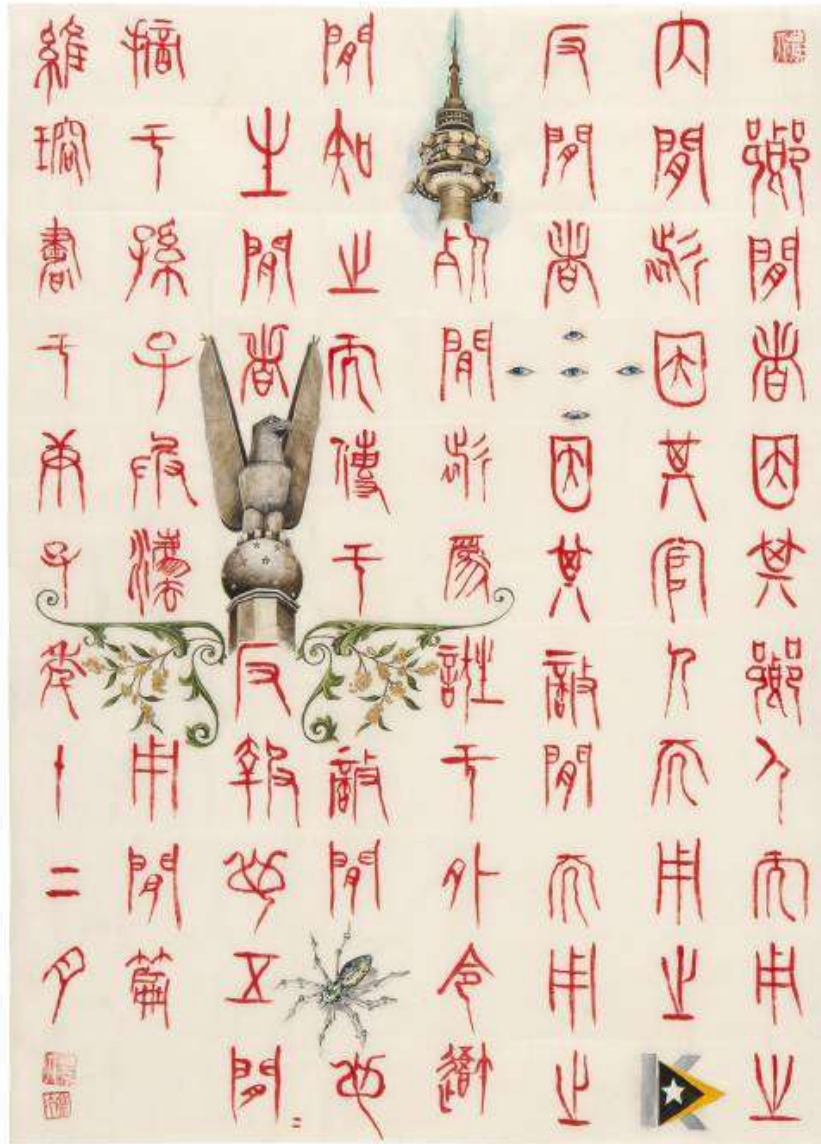 鄉閒者因其鄉人而用之
內閒者因其官人而用之
K
反閒者因其敵閒而用之
死閒者為誑于外令吾
閒知之而傳于敵閒也
生閒者反報也五閒
摘于孫子兵法用閒篇
維瑢書于庚子十二月